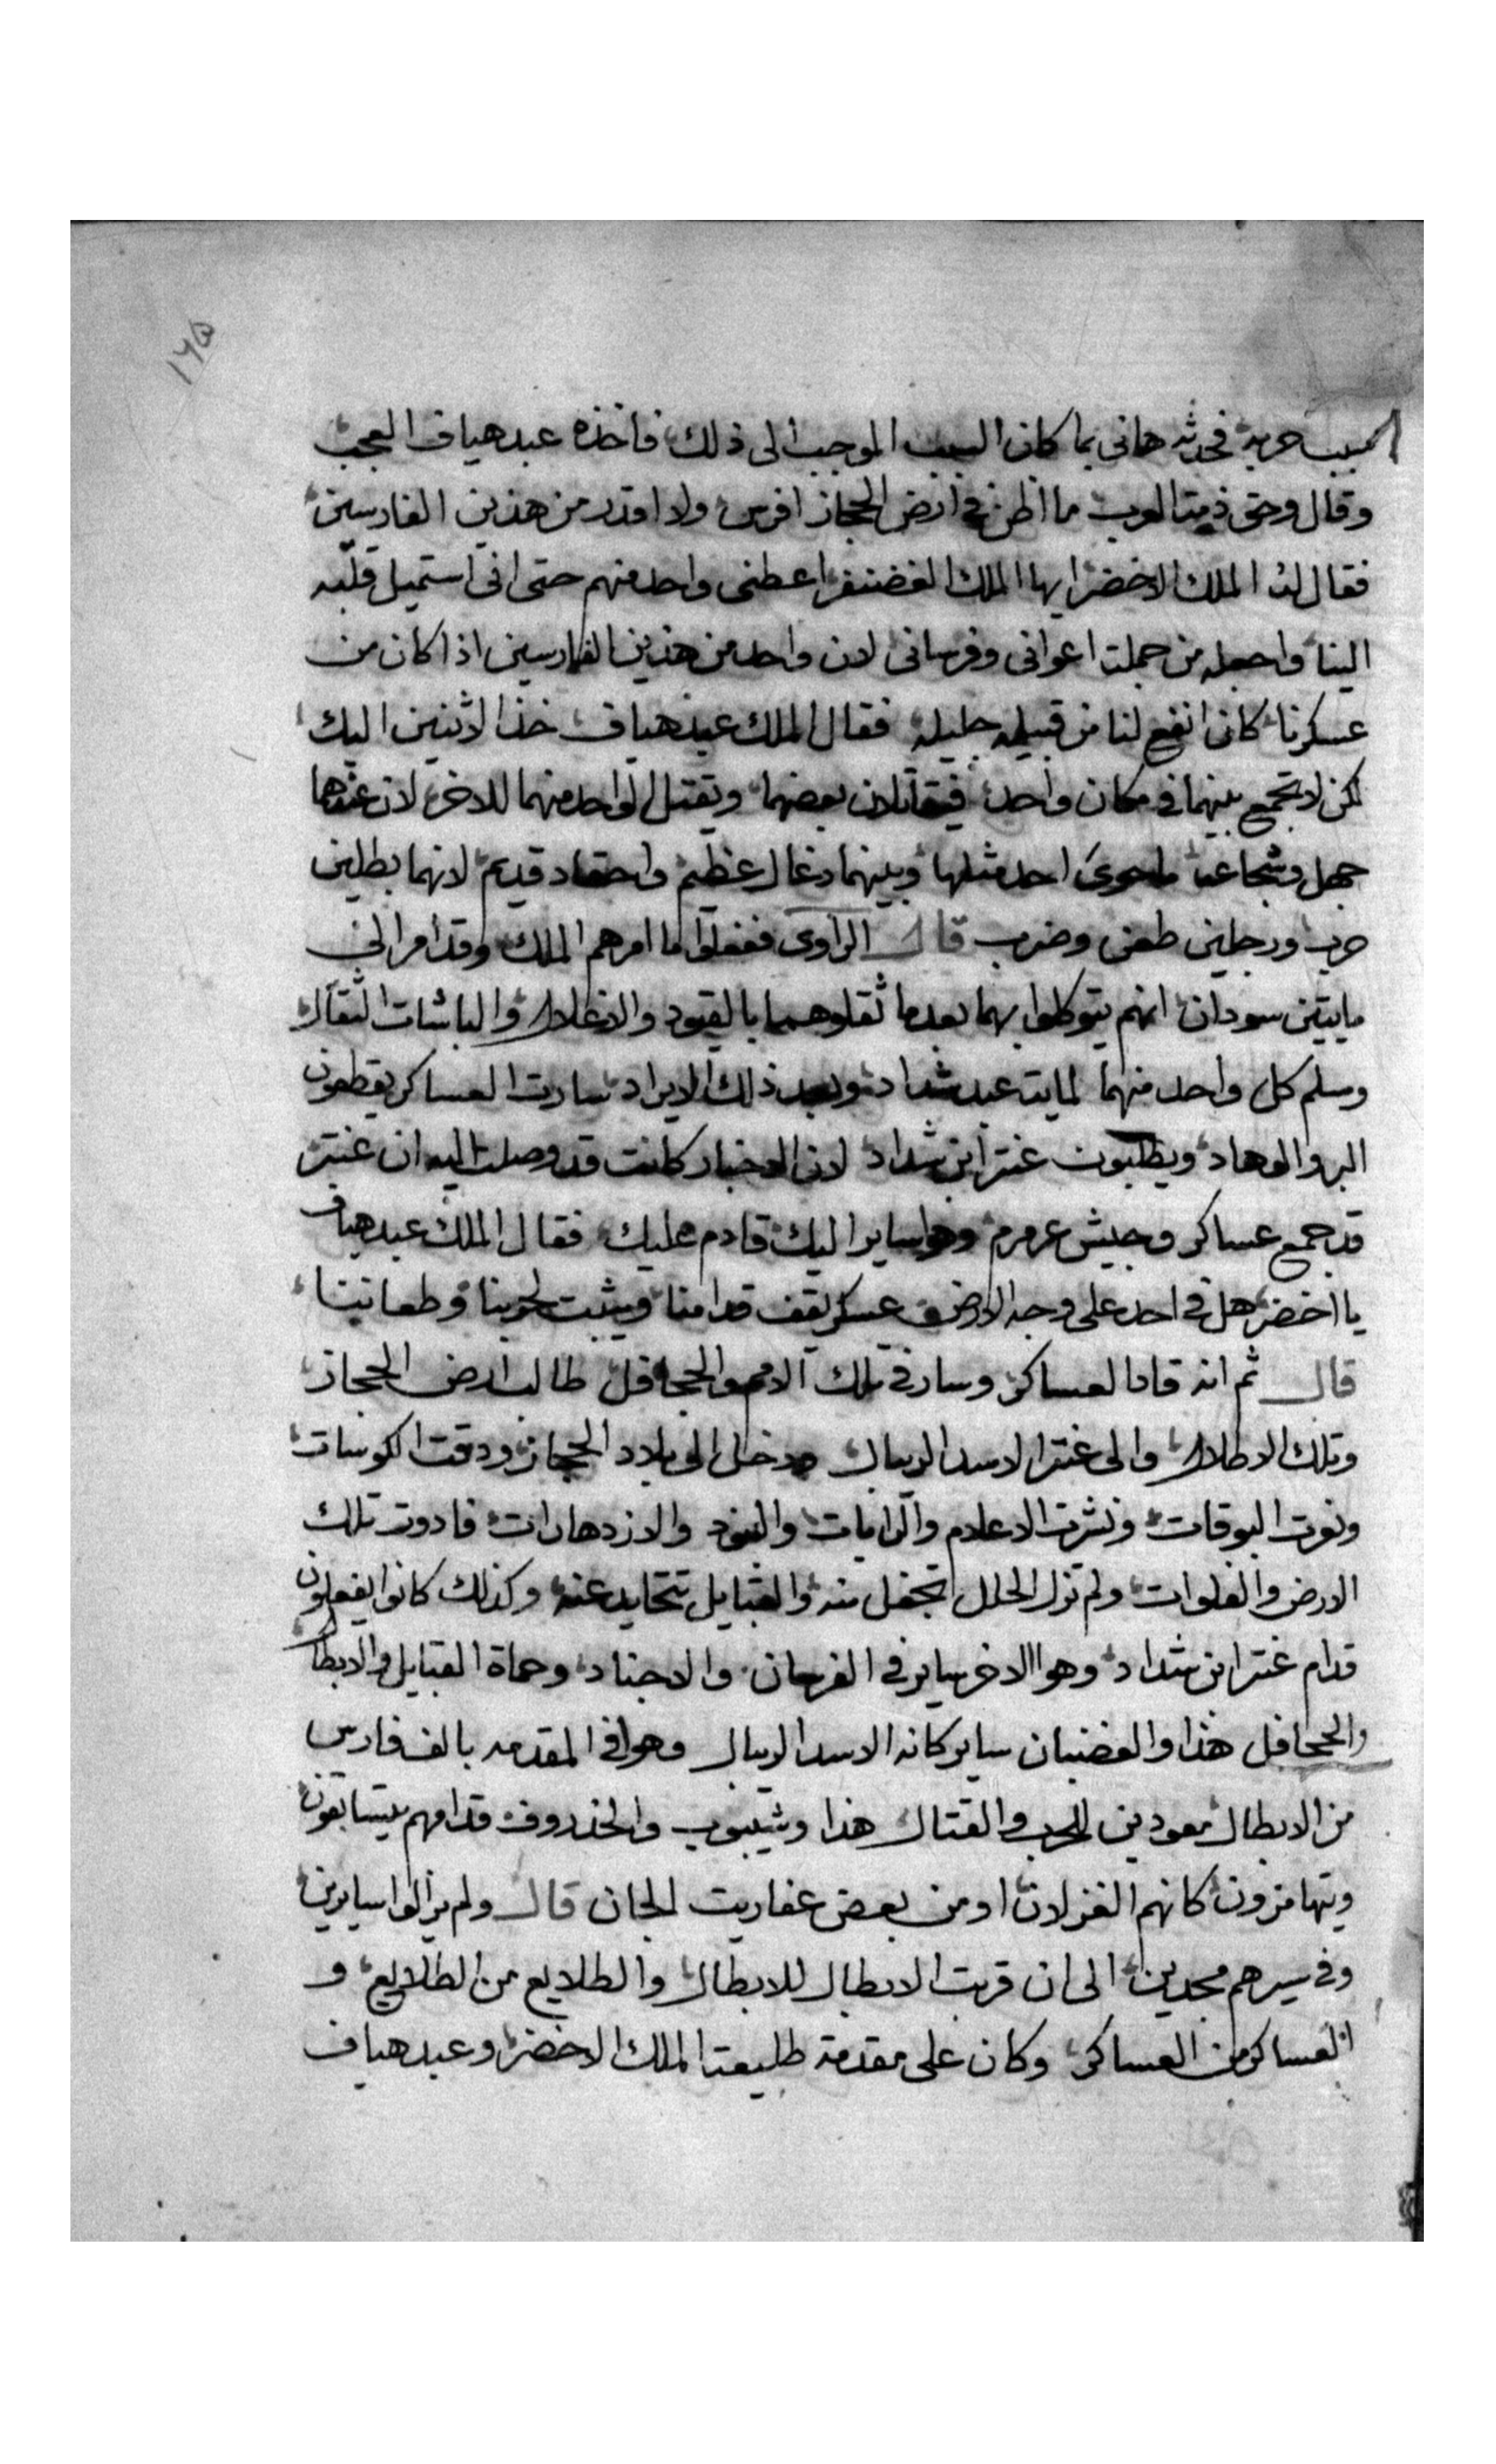 ١٢٥
السبب حربه فحدثه هانى بما كان السبب الموجب الى ذلك فاخذه عبد هياف العجب
وقال وحق ذمت العرب ما اظن فى ارض الحجاز افرس ولا اقدر من هذين الفارسين
فقال له الملك الاخضر ايها الملك الغضنفر اعطنى واحد منهم حتى انى استميل قلبه
الينا واجعله من جملت اعوانى وفرسانى لان واحد من هذين الفارسين اذا كان من
عسكرنا كان انفع لنا من قبيله جليله فقال الملك عبد هياف خذ الاثنين اليك
لكن لا تجمع بينهما فى مكان واحد فيقاتلان بعضهما ويقتل الواحد منهما للاخر لان عندهما
جهل وشجاعه ما حوى احد مثلها وبينهما دغال عظيم واحقاد قديم لانهما بطلين
حرب ورجلين طعن وضرب قال الراوى ففعلوا ما امرهم الملك وقد امر الى
مايتين سودان انهم يتوكلوا بهما بعدما ثقلوهما بالقيود والاغلال والباشات الثقال
وسلم كل واحد منهما لمايت عبد شداد وبعد ذلك الايراد سارت العساكر يقطعون
البر والوهاد ويطلبون عنتر ابن شداد لان الاخبار كانت قد وصلت اليه ان عنتر
قد جمع عساكر وجيش عرمرم وهو ساير اليك قادم عليك فقال الملك عبد هياف
يا اخضر هل فى احد على وجه الارض عسكر يقف قدامنا ويثبت لحربنا وطعاننا
قال ثم انه قاد العساكر وسار فى تلك الامم والجحافل طالب ارض الحجاز
وتلك الاطلال والى عنتر الاسد الريبال ودخل الى بلاد الحجاز ودقت الكوسات
ونعرت البوقات ونشرت الاعلام والرايات والبنود والازدهارات فادوت تلك
الارض والفلوات ولم تزل الحلل تجفل منه والقبايل تتحايد عنه وكذلك كانوا يفعلون
قدام عنتر ابن شداد وهو الاخر ساير فى الفرسان والاجناد وحماة القبايل والابطال
والجحافل هذا والغضبان ساير كانه الاسد الريبال وهو فى المقدمه بالف فارس
من الابطال معودين للحرب والقتال هذا وشيبوب والخذروف قدامهم يتسابقون
ويتهامزون كانهم الغزلان او من بعض عفاريت الجان قال ولم يزالوا سايرين
وفى سيرهم مجدين الى ان قربت الابطال للابطال والطلايع من الطلايع و
العساكر من العساكر وكان على مقدمة طليعت الملك الاخضر وعبد هياف